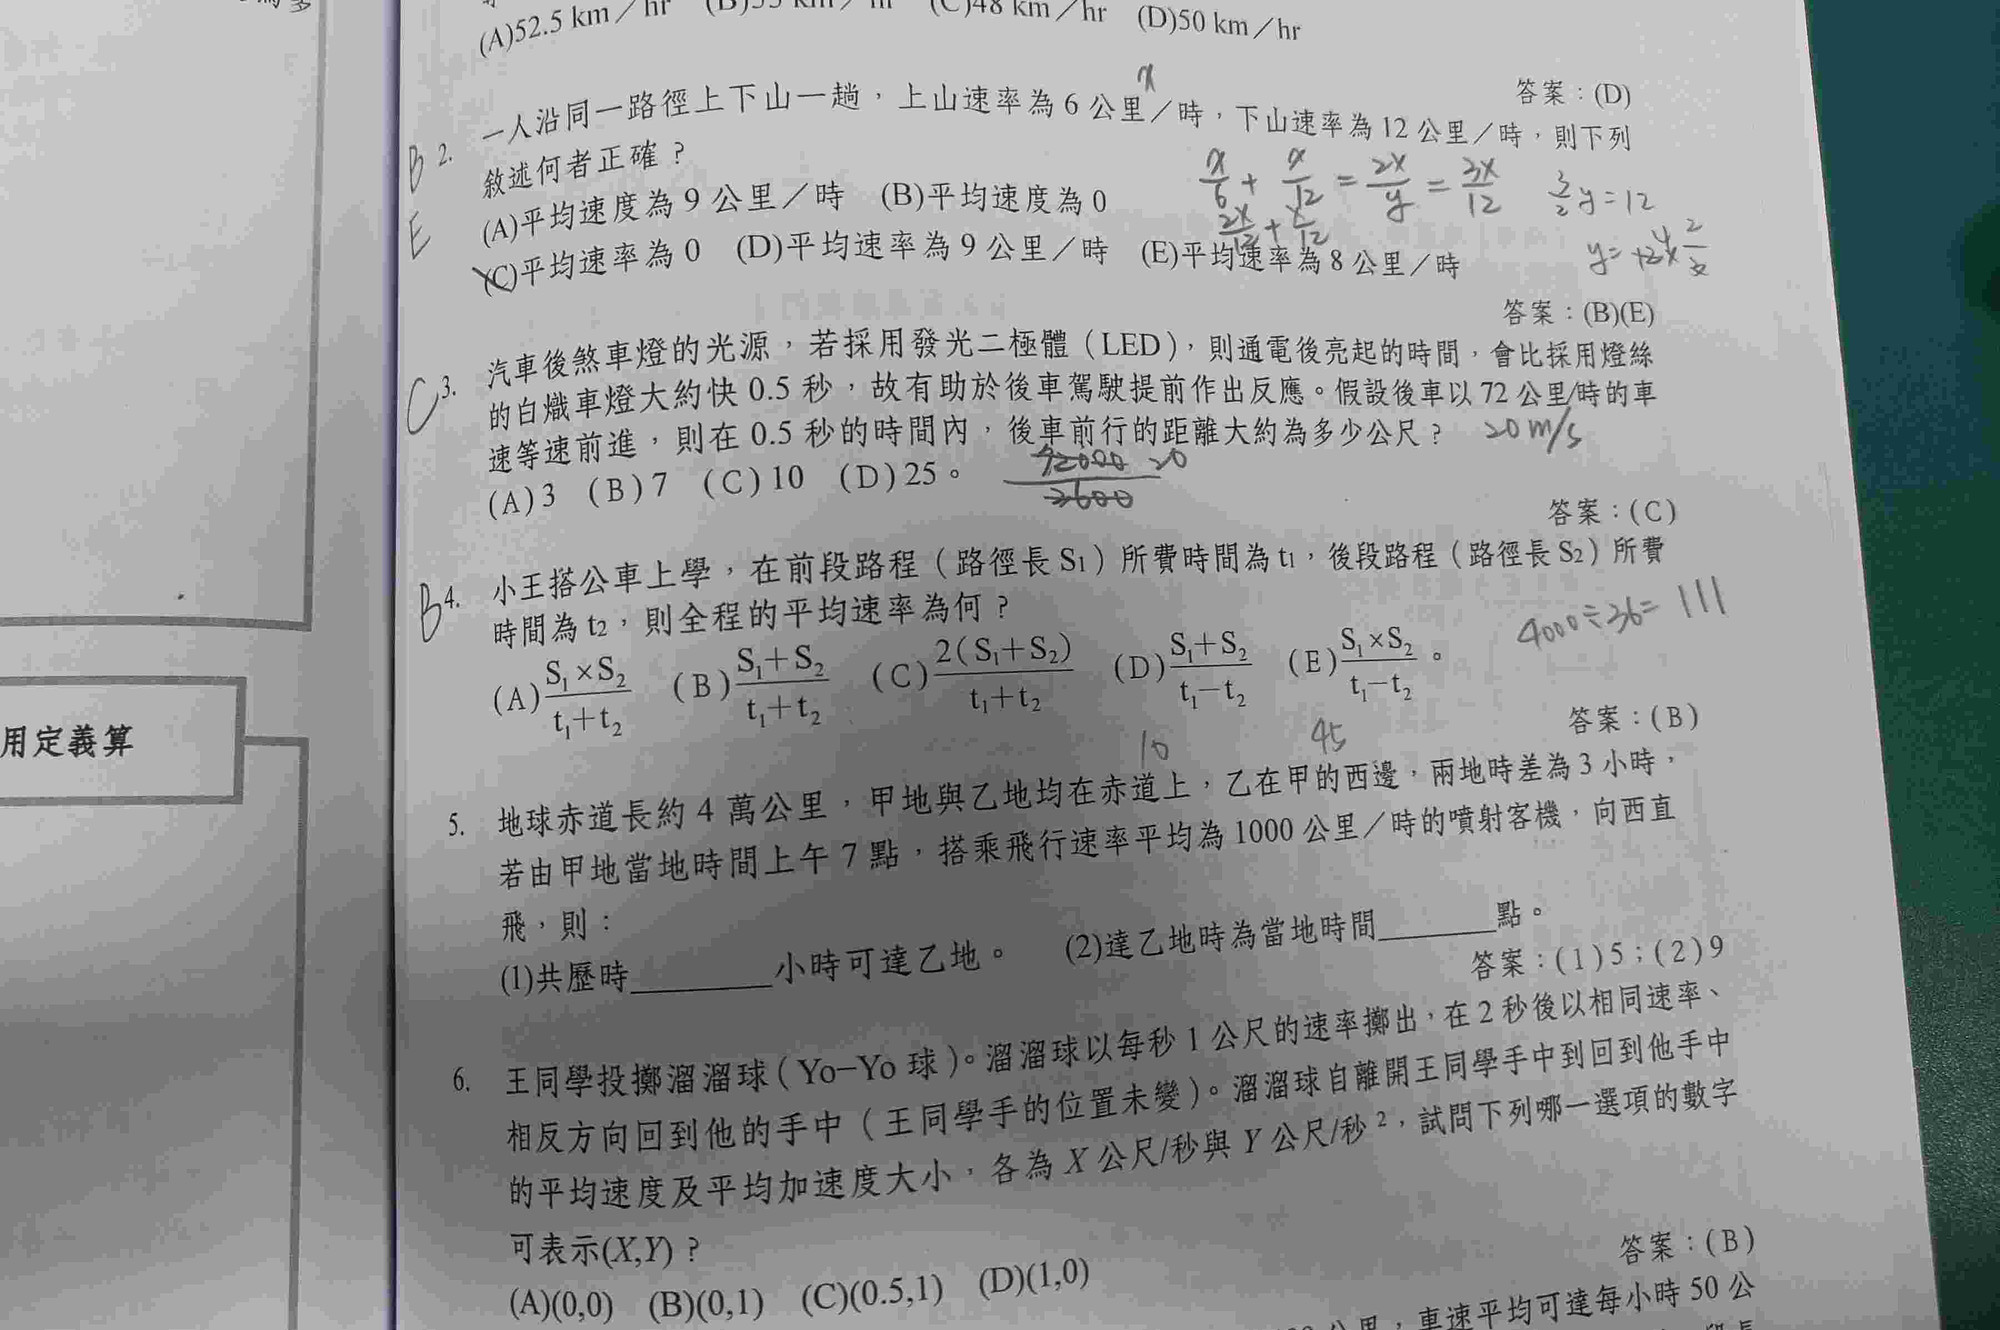 (A)52.5 km／hr (C)48 km／hr (D)50 km／hr
答案：(D)
x
B 2. 一人沿同一路徑上下山一趟，上山速率為 6 公里／時，下山速率為 12 公里／時，則下列
敘述何者正確？
E (A)平均速度為 9 公里／時 (B)平均速度為 0
(C)平均速率為 0 (D)平均速率為 9 公里／時 (E)平均速率為 8 公里／時
x/6 + x/12 = 2x/y = 3x/12
2x/12 + x/12
3/2 y = 12
答案：(B)(E)
C 3. 汽車後煞車燈的光源，若採用發光二極體（LED），則通電後亮起的時間，會比採用燈絲
的白熾車燈大約快 0.5 秒，故有助於後車駕駛提前作出反應。假設後車以 72 公里/時的車
速等速前進，則在 0.5 秒的時間內，後車前行的距離大約為多少公尺？ 20 m/s
(A) 3 (B) 7 (C) 10 (D) 25。 72000 20
3600
答案：(C)
B 4. 小王搭公車上學，在前段路程（路徑長 S1）所費時間為 t1，後段路程（路徑長 S2）所費
時間為 t2，則全程的平均速率為何？
4000÷36= 111
(A) S₁×S₂/t₁＋t₂ (B) S₁＋S₂/t₁＋t₂ (C) 2(S₁＋S₂)/t₁＋t₂ (D) S₁＋S₂/t₁－t₂ (E) S₁×S₂/t₁－t₂。
答案：(B)
10 45
5. 地球赤道長約 4 萬公里，甲地與乙地均在赤道上，乙在甲的西邊，兩地時差為 3 小時，
若由甲地當地時間上午 7 點，搭乘飛行速率平均為 1000 公里／時的噴射客機，向西直
飛，則：
(1)共歷時________小時可達乙地。 (2)達乙地時為當地時間_______點。
答案：(1)5；(2)9
6. 王同學投擲溜溜球（Yo−Yo 球）。溜溜球以每秒 1 公尺的速率擲出，在 2 秒後以相同速率、
相反方向回到他的手中（王同學手的位置未變）。溜溜球自離開王同學手中到回到他手中
的平均速度及平均加速度大小，各為 X 公尺/秒與 Y 公尺/秒²，試問下列哪一選項的數字
可表示(X,Y)？
(A)(0,0) (B)(0,1) (C)(0.5,1) (D)(1,0)
答案：(B)
公里，車速平均可達每小時 50 公
用定義算